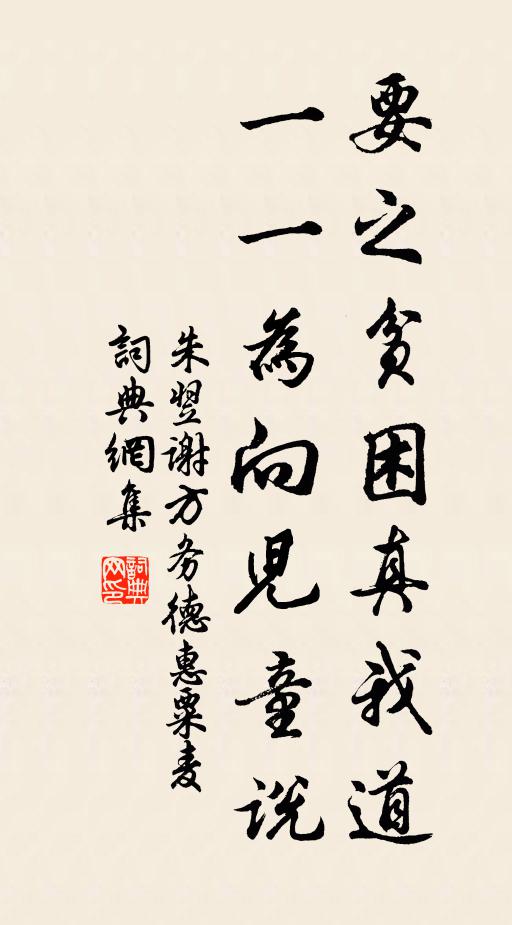 要之贫困真我道
一一為向児童説
朱翌谢方务德惠粟麦
詞典網集
詞典网印